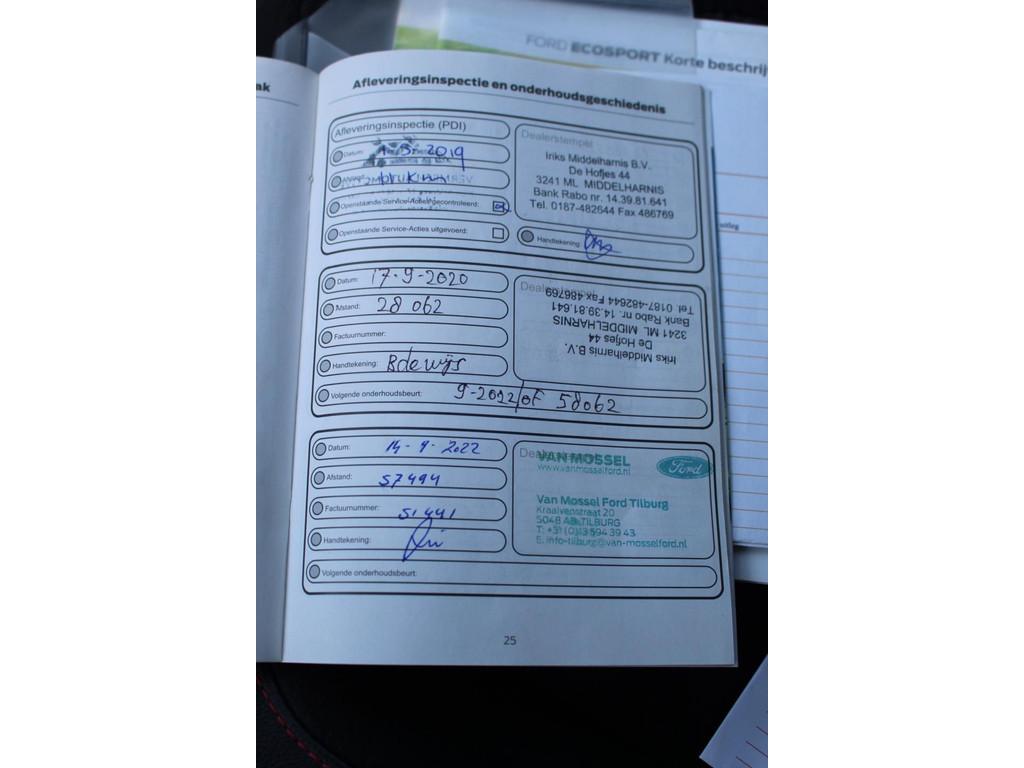 FORD ECOSPORT Korte beschrij
ak
Afleveringsinspectie en onderhoudsgeschiedenis
Afleveringsinspectie (PDI)
Datum: 2019
Afstand: km
Openstaande Service-Acties gecontroleerd:
Openstaande Service-Acties uitgevoerd:
Dealerstempel
Iriks Middelharnis B.V.
De Hofjes 44
3241 ML MIDDELHARNIS
Bank Rabo nr. 14.39.81.641
Tel. 0187-482644 Fax 486769
Handtekening
Datum: 17-9-2020
Afstand: 28 062
Factuurnummer:
Handtekening: B de wijs
Volgende onderhoudsbeurt: 9-2022/of 58062
Dealerstempel
Iriks Middelharnis B.V.
De Hofjes 44
3241 ML MIDDELHARNIS
Bank Rabo nr. 14.39.81.641
Tel. 0187-482644 Fax 486769
Datum: 14-9-2022
Afstand: 57494
Factuurnummer: 51441
Handtekening:
Volgende onderhoudsbeurt:
Dealerstempel
VAN MOSSEL
www.vanmosselford.nl
Ford
Van Mossel Ford Tilburg
Kraaivenstraat 20
5048 AB TILBURG
T: +31 (0)13 594 39 43
E. info-tilburg@van-mosselford.nl
25